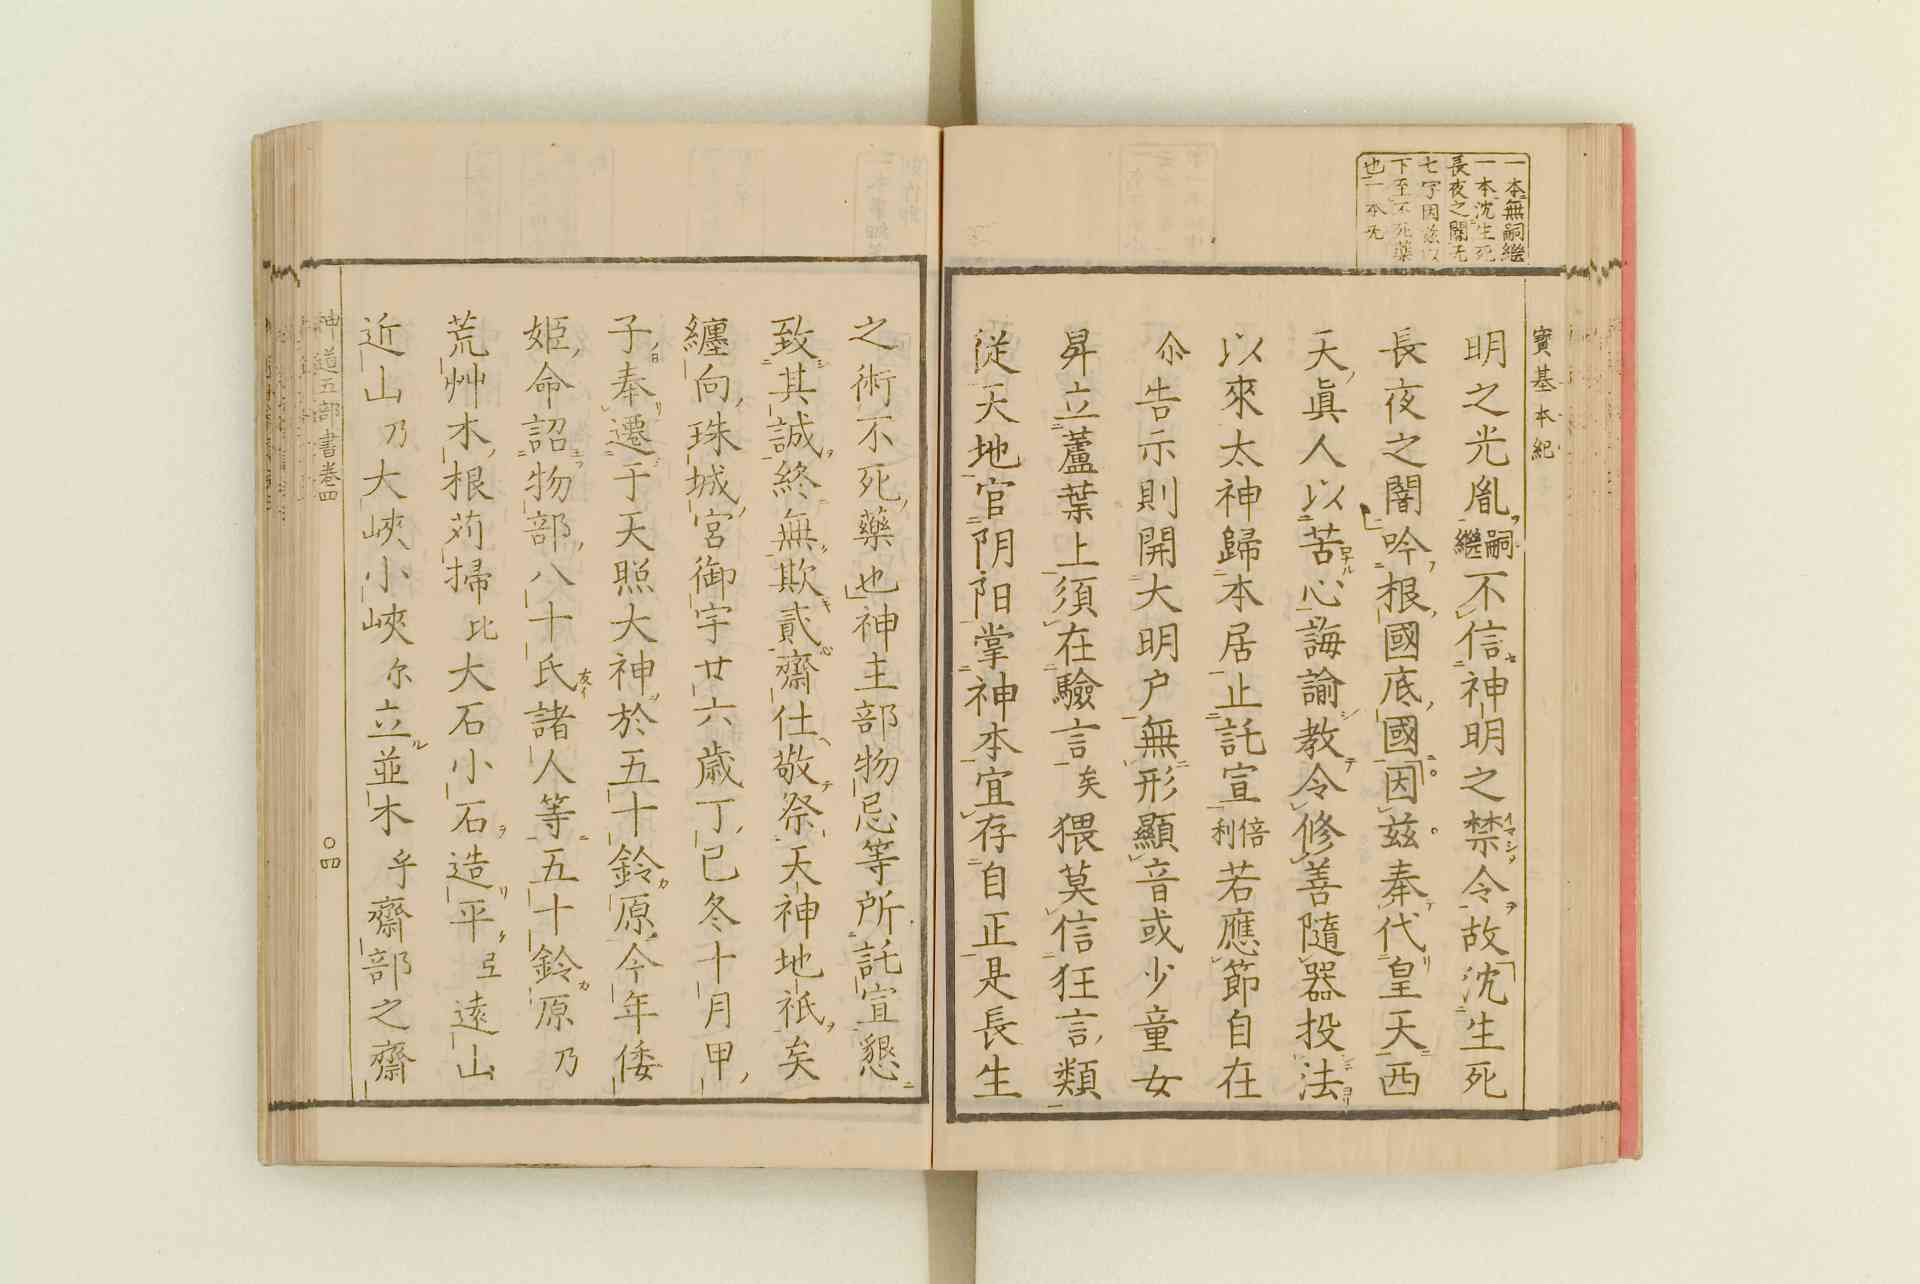 一本無嗣繼
一本沈生死
長夜之闇无
七字因玆以
下至不死藥
也一本无
寶基本紀
明之光胤嗣繼不信神明之禁令故沈生死
長夜之闇吟根國底國因玆奉代皇天西
天眞人以苦心誨諭教令修善隨器投法
以來太神歸本居止託宣倍利若應節自在
尒告示則開大明戸無形顯音或少童女
昇立蘆葉上須在驗言矣猥莫信狂言類
従天地官阴阳掌神本宜存自正是長生
之術不死藥也神主部物忌等所託宣懇
致其誠終無欺貳齋仕敬祭天神地祇矣
纏向珠城宮御宇廿六歳丁巳冬十月甲
子奉遷于天照大神於五十鈴原今年倭
姫命詔物部八十氏諸人等五十鈴原乃
荒艸木根苅掃比大石小石造平弖遠山
近山乃大峽小峽尓立並木乎齋部之齋
神道五部書巻四
〇四